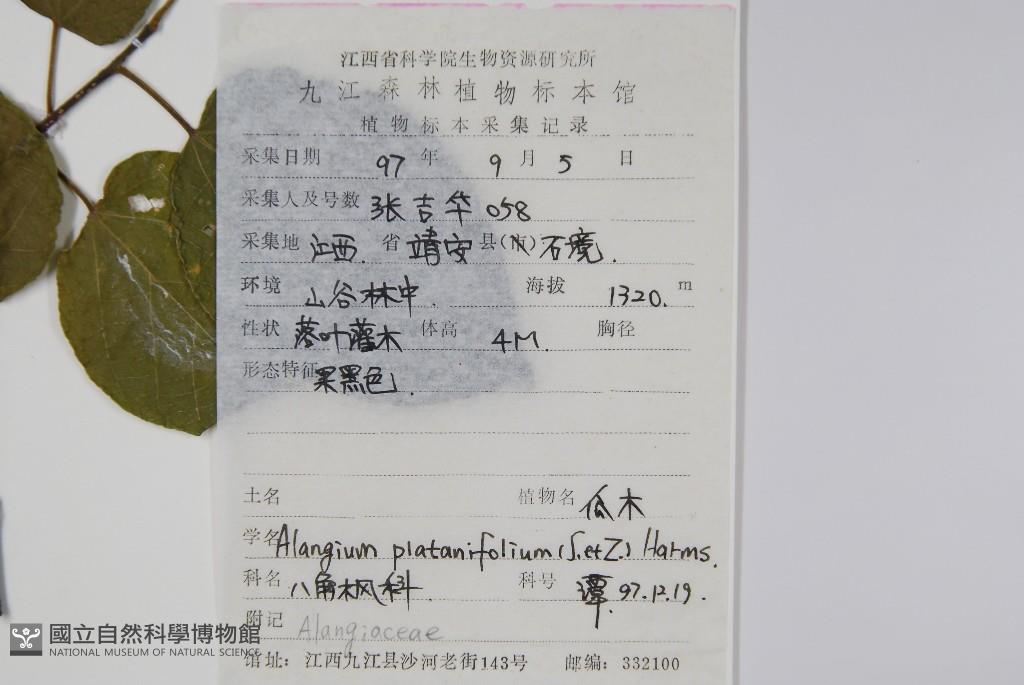 江西省科学院生物资源研究所
九江森林植物标本馆
植物标本采集记录
采集日期 97 年 9 月 5 日
采集人及号数 张吉华 058
采集地 江西 省 靖安 县(市) 石境.
环境 山谷林中. 海拔 1320. m
性状 落叶灌木 体高 4M. 胸径
形态特征 果黑色.
土名 植物名 瓜木
学名 Alangium platanifolium (S. et Z.) Harms.
科名 八角枫科 科号 谭 97.12.19.
附记 Alangiaceae
馆址: 江西九江县沙河老街143号 邮编: 332100
國立自然科學博物館
NATIONAL MUSEUM OF NATURAL SCIENCE